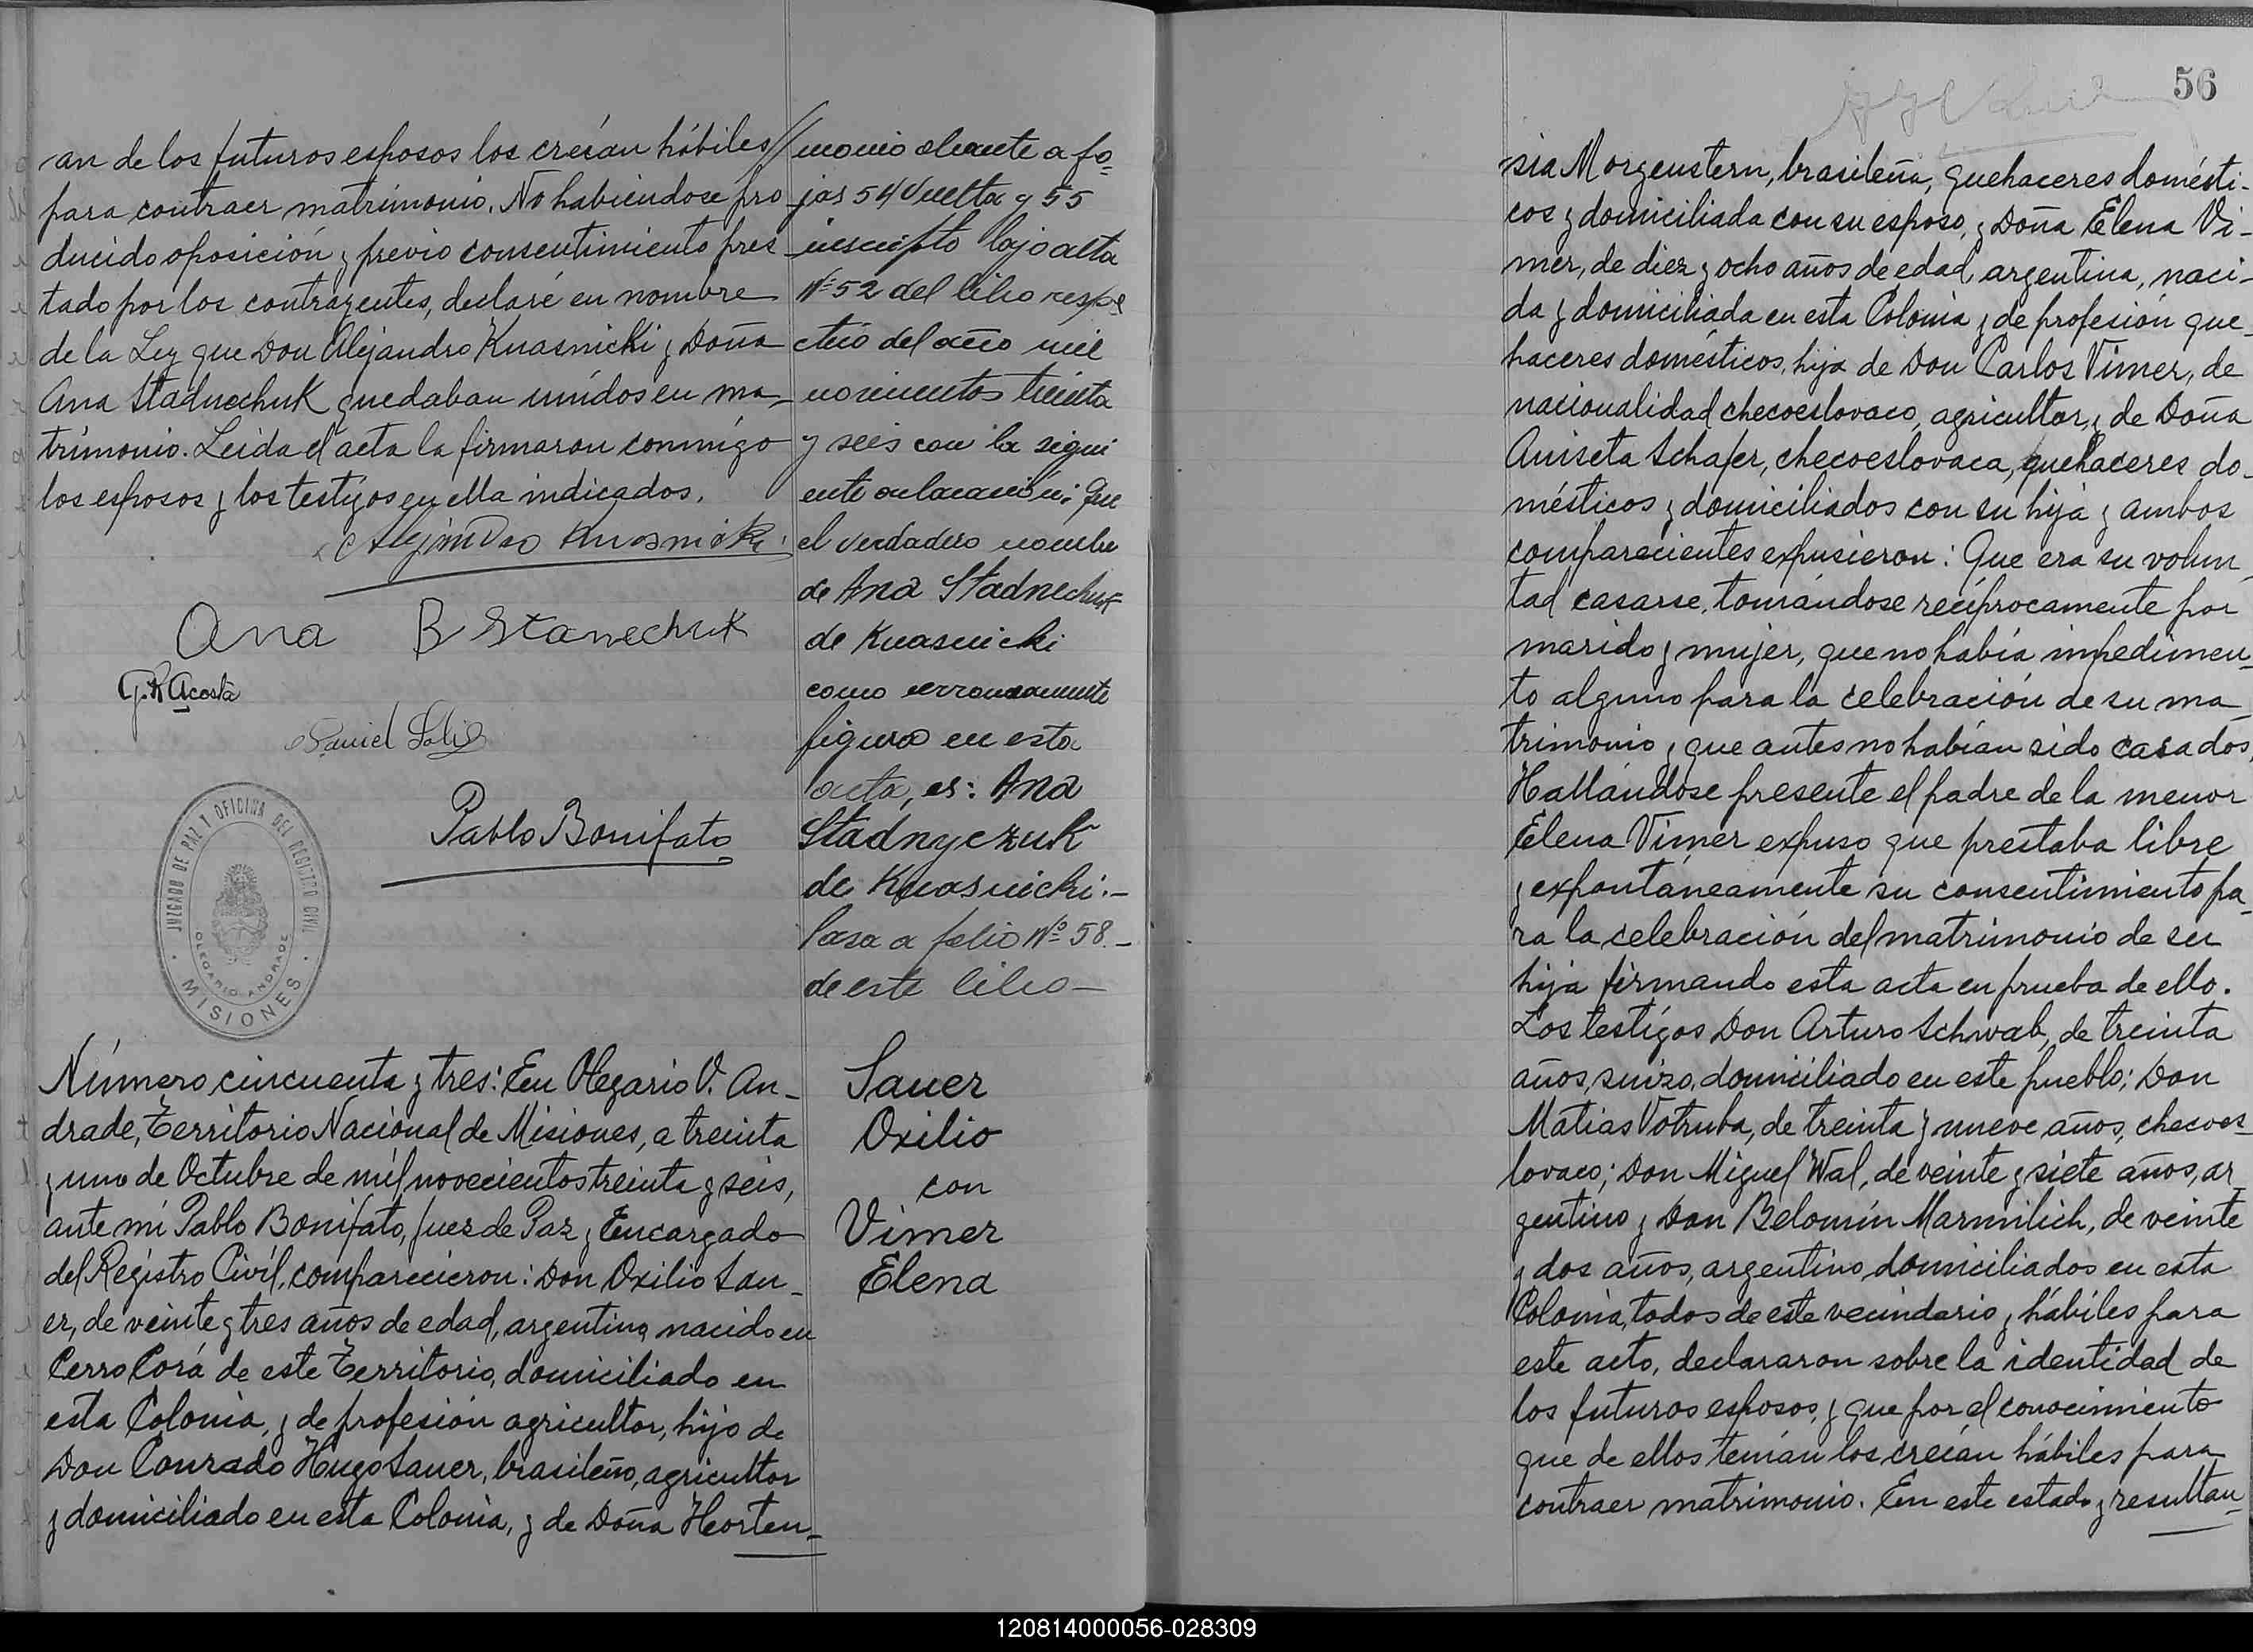 an de los futuros esposos los creían hábiles //
para contraer matrimonio. No habiéndose pro
ducido oposición y previo consentimiento pres
tado por los contrayentes, declaré en nombre
de la Ley que Don Alejandro Kuasnicki y Doña
Ana Staduechuk quedaban unidos en ma-
trimonio. Leida el acta la firmaron conmigo
los esposos y los testigos en ella indicados.
Alejandro Kuosnicki
Ana B Stanechuk
G. R Acosta
Daniel
Pablo Bonifato
JUZGADO DE PAZ Y OFICINA DEL REGISTRO CIVIL
OLEGARIO ANDRADE
· MISIONES ·
// monio obrante a fo-
jas 54 vuelta y 55
inscripto bajo acta
Nº 52 del libro respe
ctivo del año mil
novecientos treinta
y seis con la sigui
ente aclaración: Que
el verdadero nombre
de Ana Stadnechuk
de Kuasnicki
como erroneamente
figura en esta
acta, es: Ana
Stadnyczuk
de Kuasnicki.-
Pasa a folio Nº 58.-
de este libro-
Número cincuenta y tres: En Olegario V. An-
drade, Territorio Nacional de Misiones, a treinta
y uno de Octubre de mil novecientos treinta y seis,
ante mí Pablo Bonifato, Juez de Paz y Encargado
del Registro Civil, comparecieron: Don Oxilio Sau-
er, de veinte y tres años de edad, argentino, nacido en
Cerro Corá de este Territorio, domiciliado en
esta Colonia, y de profesión agricultor, hijo de
Don Conrado Hugo Sauer, brasileño, agricultor
y domiciliado en esta Colonia, y de Doña Horten-
Sauer
Oxilio
con
Vimer
Elena
56
sia Morgenstern, brasileña, quehaceres domésti-
cos y domiciliada con su esposo, y Doña Elena Vi-
mer, de diez y ocho años de edad, argentina, naci-
da y domiciliada en esta Colonia y de profesión que-
haceres domésticos, hija de Don Carlos Vimer, de
nacionalidad checoeslovaco, agricultor, y de Doña
Aniseta Schafer, checoeslovaca, quehaceres do-
mésticos y domiciliados con su hija y ambos
comparecientes expusieron: Que era su volun-
tad casarse, tomándose recíprocamente por
marido y mujer, que no había impedimen-
to alguno para la celebración de su ma-
trimonio y que antes no habían sido casados,
Hallándose presente el padre de la menor
Elena Vimer expuso que prestaba libre
y expontáneamente su consentimiento pa-
ra la celebración del matrimonio de su
hija firmando esta acta en prueba de ello.
Los testigos Don Arturo Schwab, de treinta
años, suizo, domiciliado en este pueblo; Don
Matias Votruba, de treinta y nueve años, checoes-
lovaco; Don Miguel Wal, de veinte y siete años, ar
gentino y Don Belomín Marmilich, de veinte
y dos años, argentino, domiciliados en esta
Colonia, todos de este vecindario y hábiles para
este acto, declararon sobre la identidad de
los futuros esposos, y que por el conocimiento
que de ellos tenían los creían hábiles para
contraer matrimonio. En este estado y resultan-
120814000056-028309